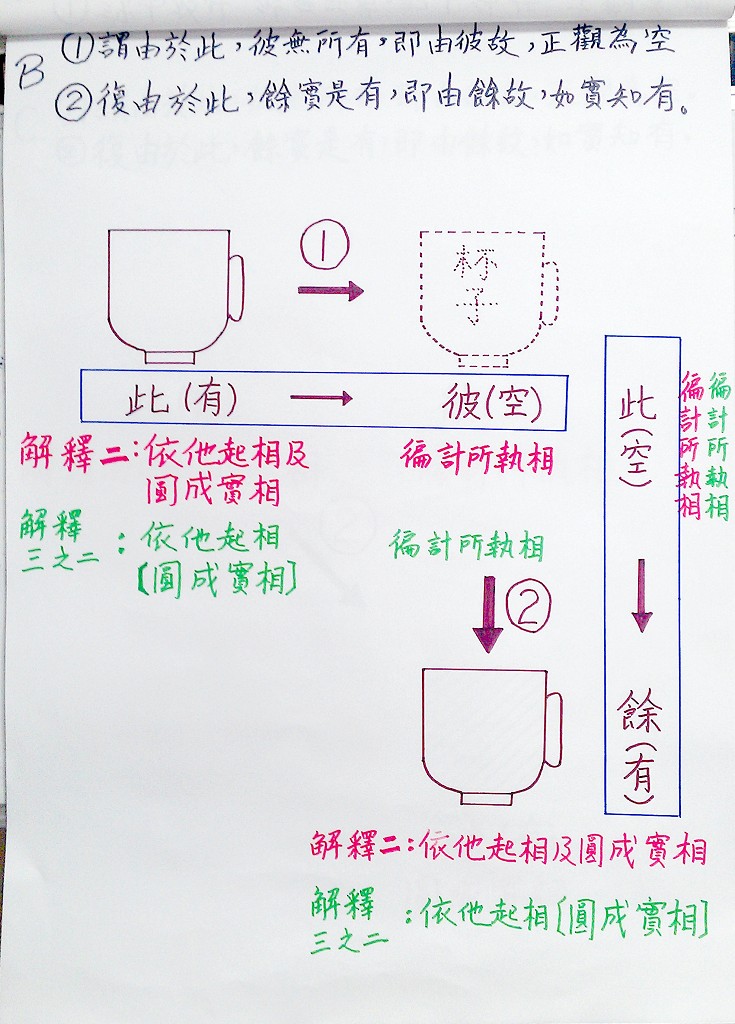 B
①謂由於此，彼無所有，即由彼故，正觀為空
②復由於此，餘實是有，即由餘故，如實知有。
①
杯子
此(有) → 彼(空)
解釋二：依他起相及
圓成實相
徧計所執相
解釋
三之二：依他起相
[圓成實相]
徧計所執相
②
此(空) → 餘(有)
徧計所執相
徧計所執相
解釋二：依他起相及圓成實相
解釋
三之二：依他起相[圓成實相]